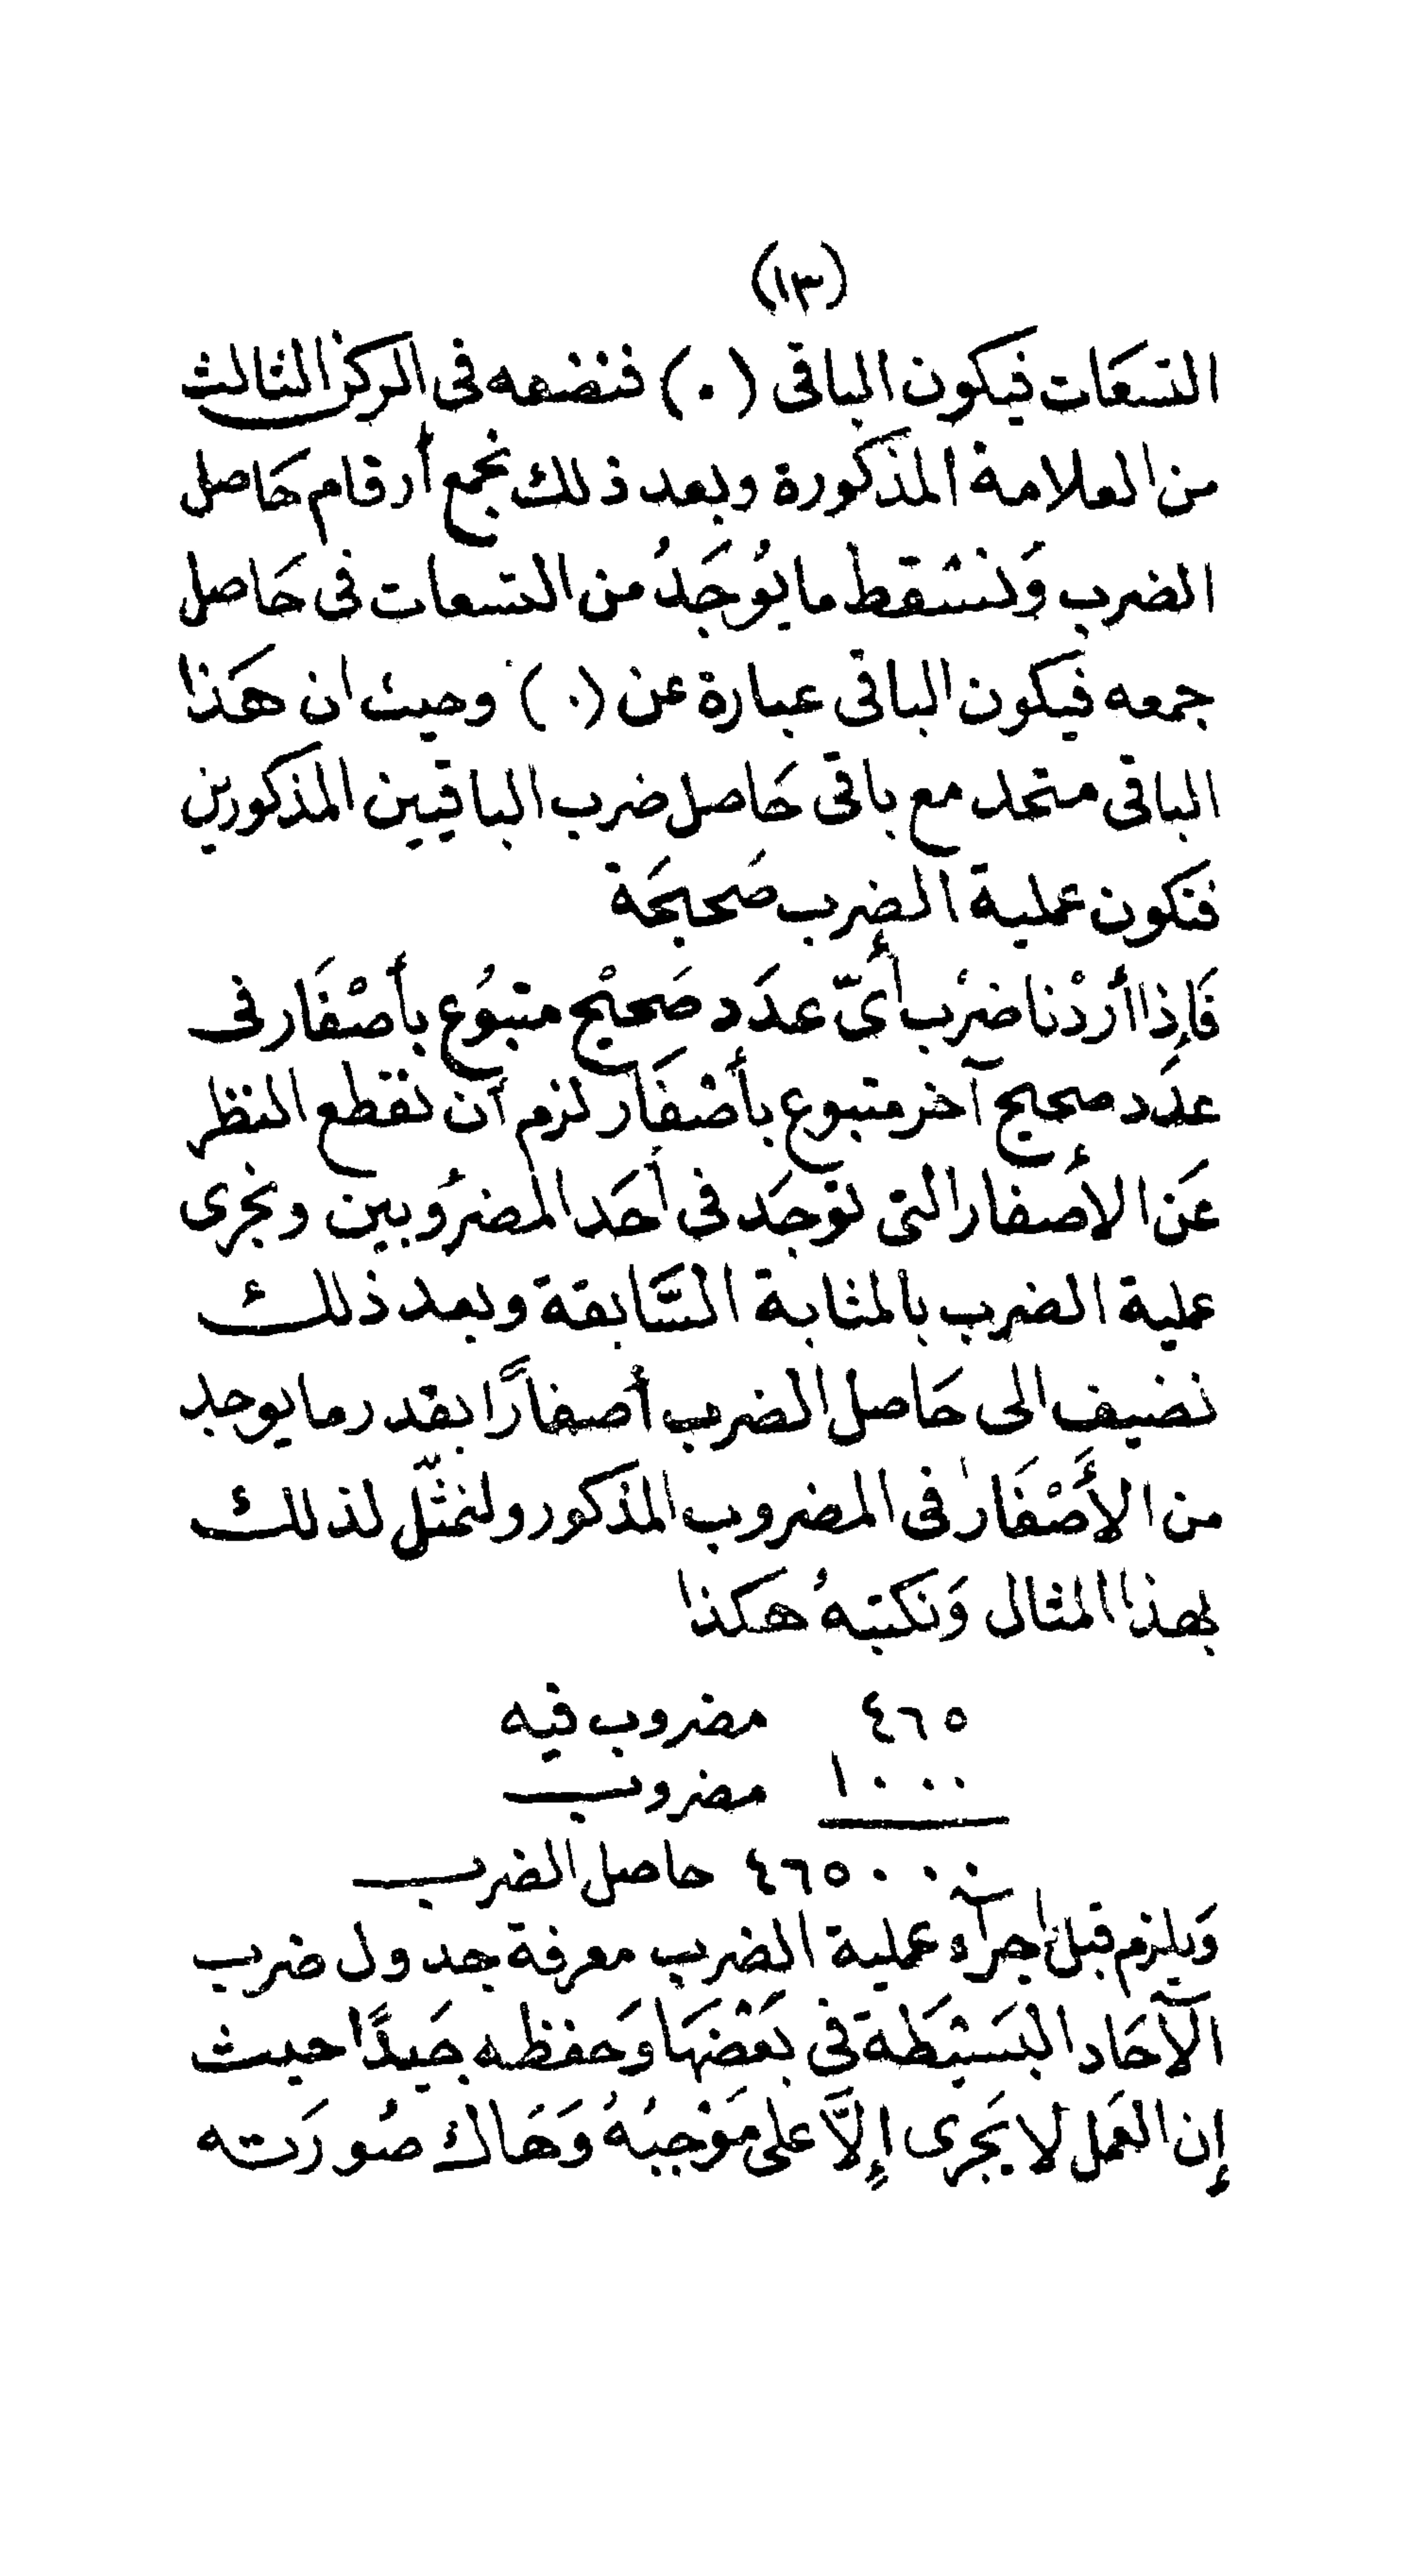 (١٣)
التسعَات فيكون الباقى (٠) فنضعه فى المركز الثالث
من العلامة المذكورة وبعد ذلك نجمع أرقام حَاصل
الضرب وَنسْقط ما يُوجَدُ من التسعات فى حَاصل
جمعه فيكون الباقى عبارة عن (٠) وحيث ان هَذا
الباقى متحد مع باقى حَاصل ضرب الباقيين المذكورين
فتكون عملية الضرب صَحيحَة
فَإِذا أردْنا ضرْب أىّ عدَد صَحيْح متبوُع بأصْفَار فى
عدَد صحيح آخر متبوع بأصْفَار لزم أن نقطع النظر
عَن الأصفار التى توجَد فى أحَد المضرُوبين ونجرى
عملية الضرب بالمثابة السَّابقة وبعد ذلك
نضيف الى حَاصل الضرب أصفارًا بقدر ما يوجد
من الأَصْفَار فى المضروب المذكور ولنمثّل لذلك
بهذا المثال وَنكتبهُ هكذا
٤٦٥ مضروب فيه
١٠٠٠ مضروب
٤٦٥٠٠٠ حاصل الضرب
وَيلزم قبل اجرآء عملية الضرب معرفة جدول ضرب
الآحَاد البَسْيَطَة فى بَعْضهَا وَحفظه جَيدًا حيث
إن العَمل لا يَجرى إِلاَّ على مَوْجبُهُ وَهَاك صُورَته